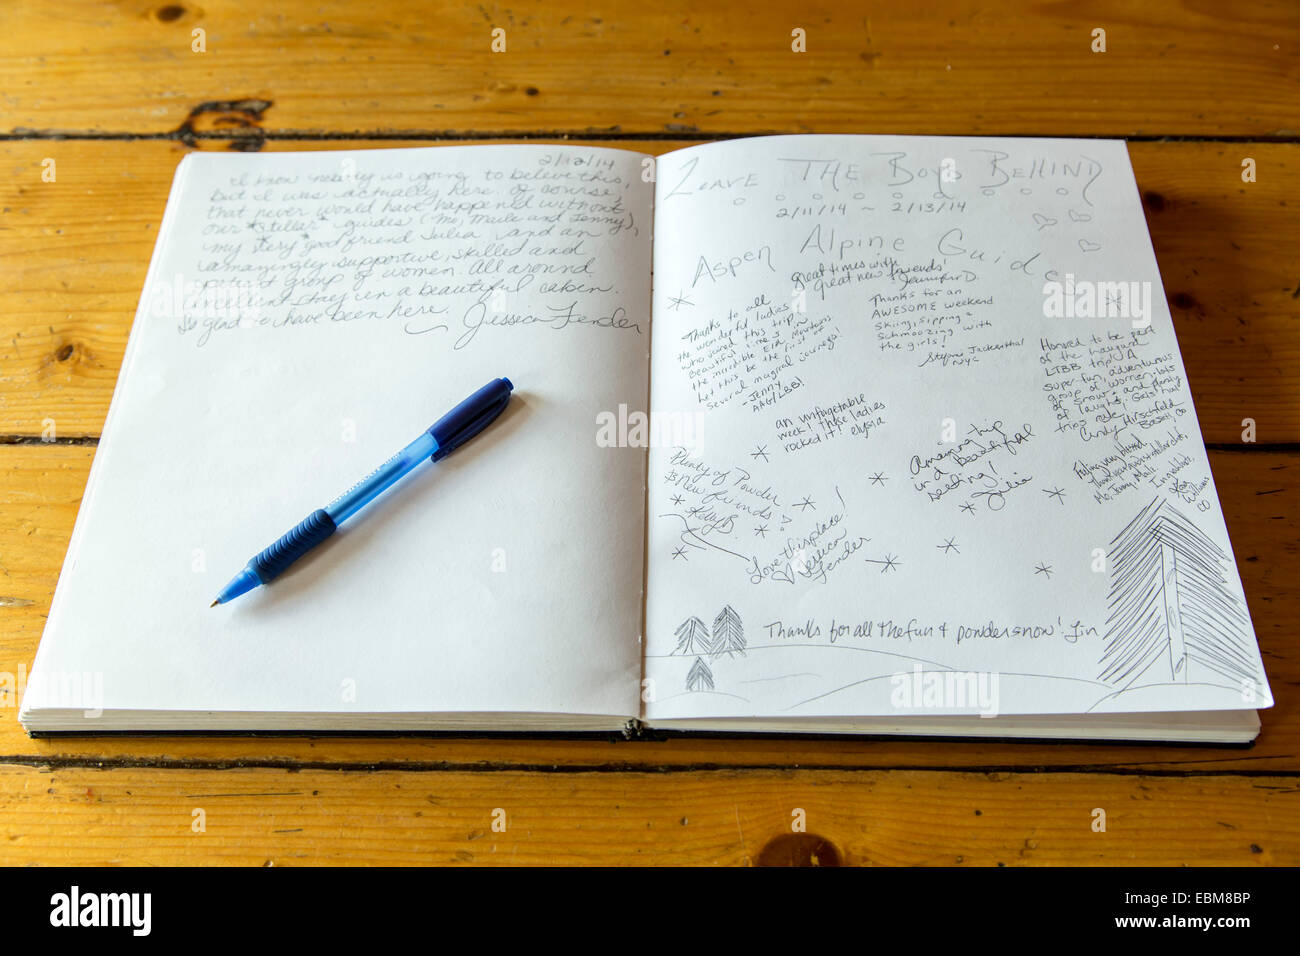 2/12/14
I know nobody is going to believe this,
but I was actually here. Of course,
that never would have happened without
our *stellar* guides (Mo, Maile and Jenny),
my very good friend Julia and an
amazingly supportive skilled and
patient group of women. All around
excellent in a beautiful cabin.
So glad to have been here. Jessica Fender
Leave The Boys Behind
2/11/14 ~ 2/13/14
Aspen Alpine Guides
Great times with
great new friends!
Jennifer D.
Thanks to all
the wonderful ladies
who joined this trip,
Beautiful times in
the incredible Elk Mountains
Let this be the first of
several magical journeys!
- Jenny
AAG/LBB!
Thanks for an
AWESOME weekend
skiing, sipping &
schmoozing with
the girls!
NYC
Honored to be part
of the inaugural
LTBB trip!! A
super-fun, adventurous
group of women. Lots
of snow and plenty
of laughs. Gals that
Cindy Hirschfeld
Basalt, CO
an unforgettable
week! These ladies
rocked it! elysia
Amazing trip
in a beautiful
setting!
Julia
Plenty of Powder
& New friends!
Kelly B.
Love this place!
Jessica
Fender
Feeling very blessed.
Thank you
Mo, Jenny, Maile
Williams
CO
Thanks for all the fun & powder snow! Jin
alamy
Image ID: EBM8BP
www.alamy.com